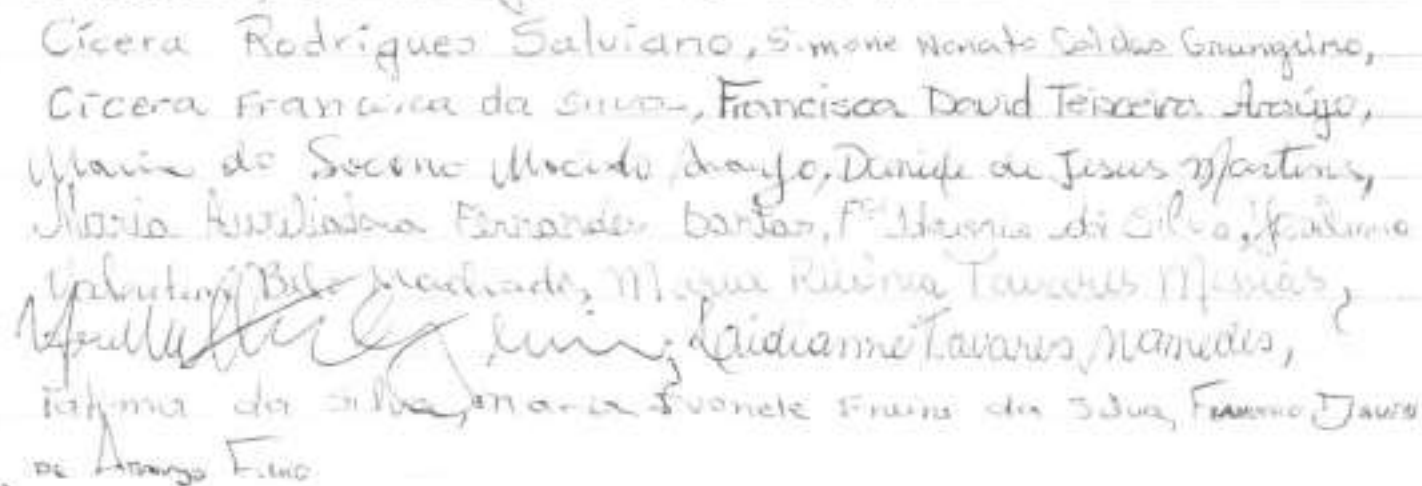 Cícera Rodrigues Salviano, Simone Nonato Caldas Grangeiro,
Cícera Francisca da Silva, Francisca David Teixeira Araújo,
Maria do Socorro Macedo Araujo, Daniele de Jesus Martins,
Maria Auxiliadora Fernandes Dantas, Fca da Silva,
Belo Machado, Maria Tavares Messias,
Laidianne Tavares Mamedes,
Fatima da Silva, Maria Ivonete Freire da Silva, Francisco David
DE Araujo Filho